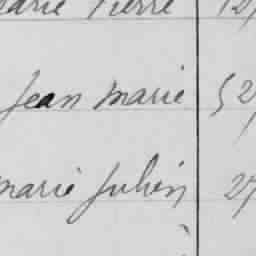 Marie Pierre 12
Jean Marie 52
Marie Julien 27